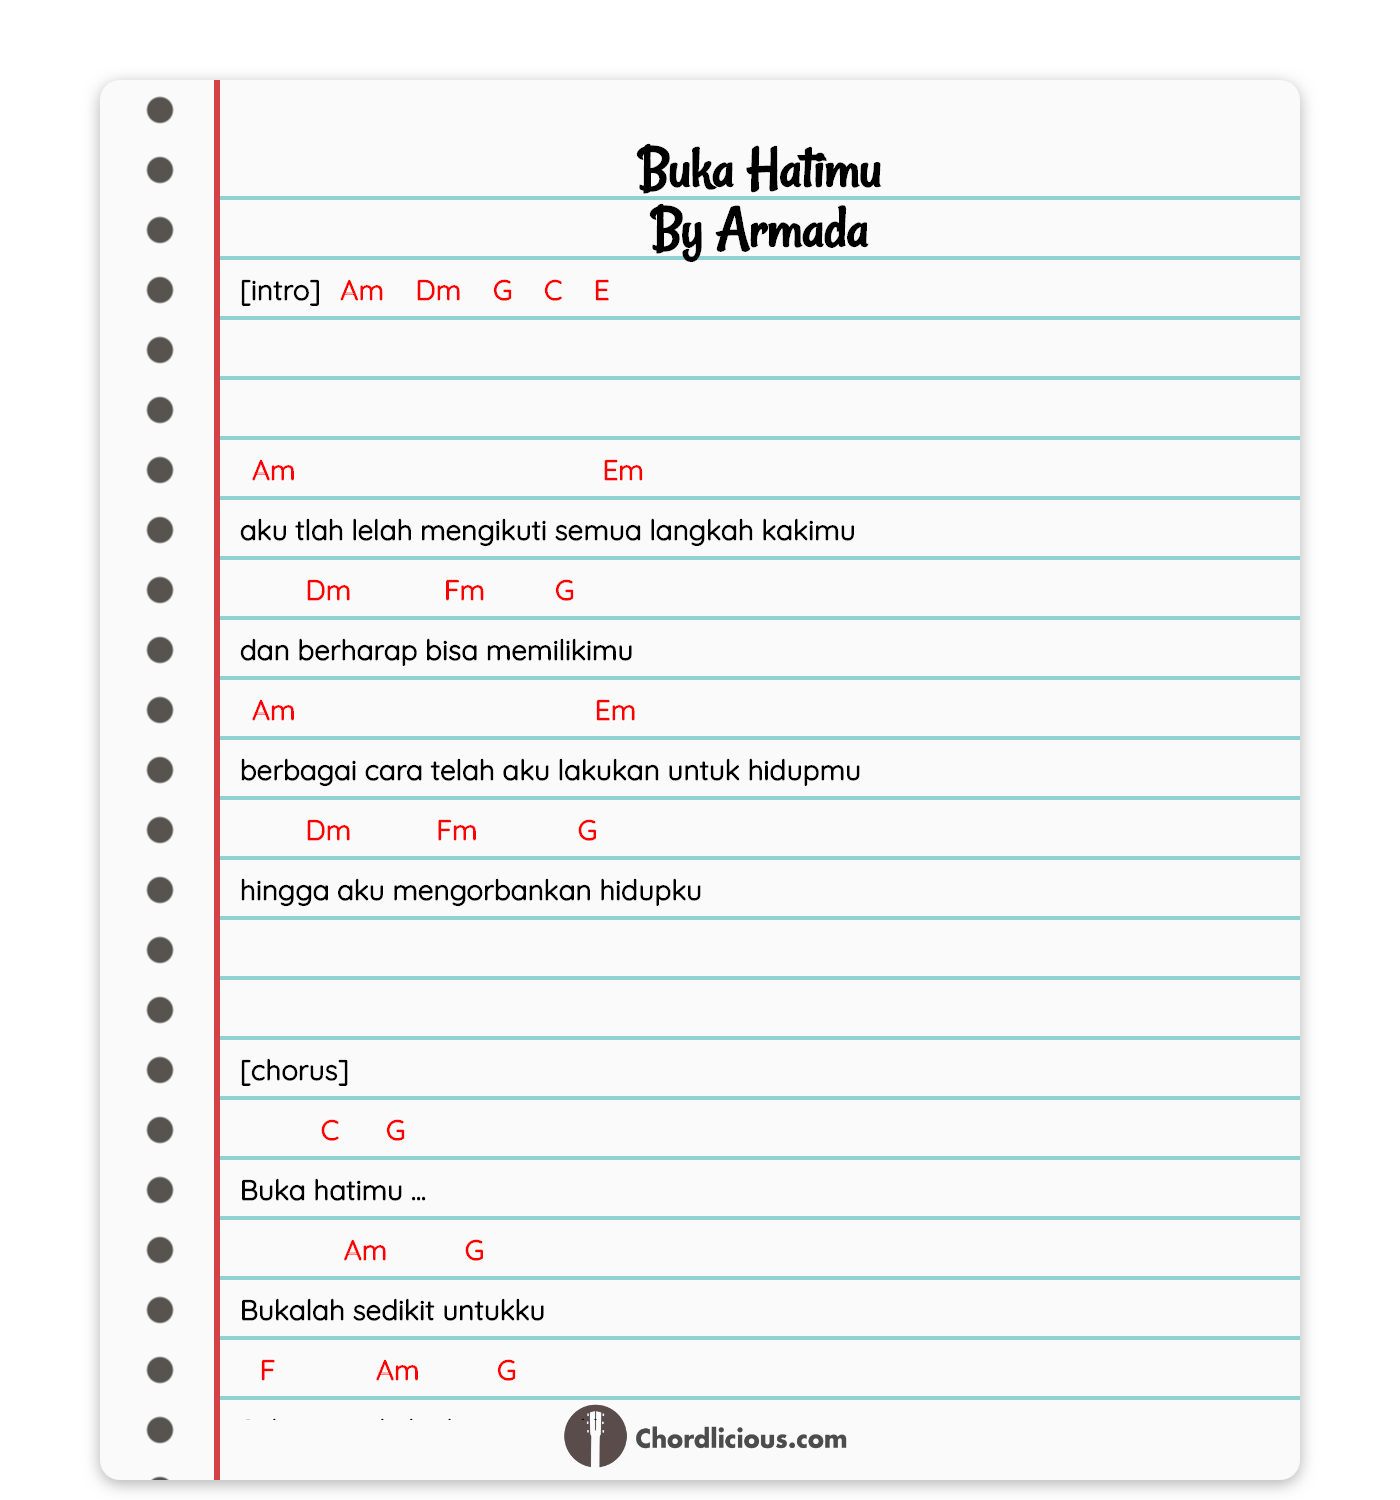 Buka Hatimu
By Armada
[intro] Am Dm G C E
Am Em
aku tlah lelah mengikuti semua langkah kakimu
Dm Fm G
dan berharap bisa memilikimu
Am Em
berbagai cara telah aku lakukan untuk hidupmu
Dm Fm G
hingga aku mengorbankan hidupku
[chorus]
C G
Buka hatimu ...
Am G
Bukalah sedikit untukku
F Am G
Chordlicious.com